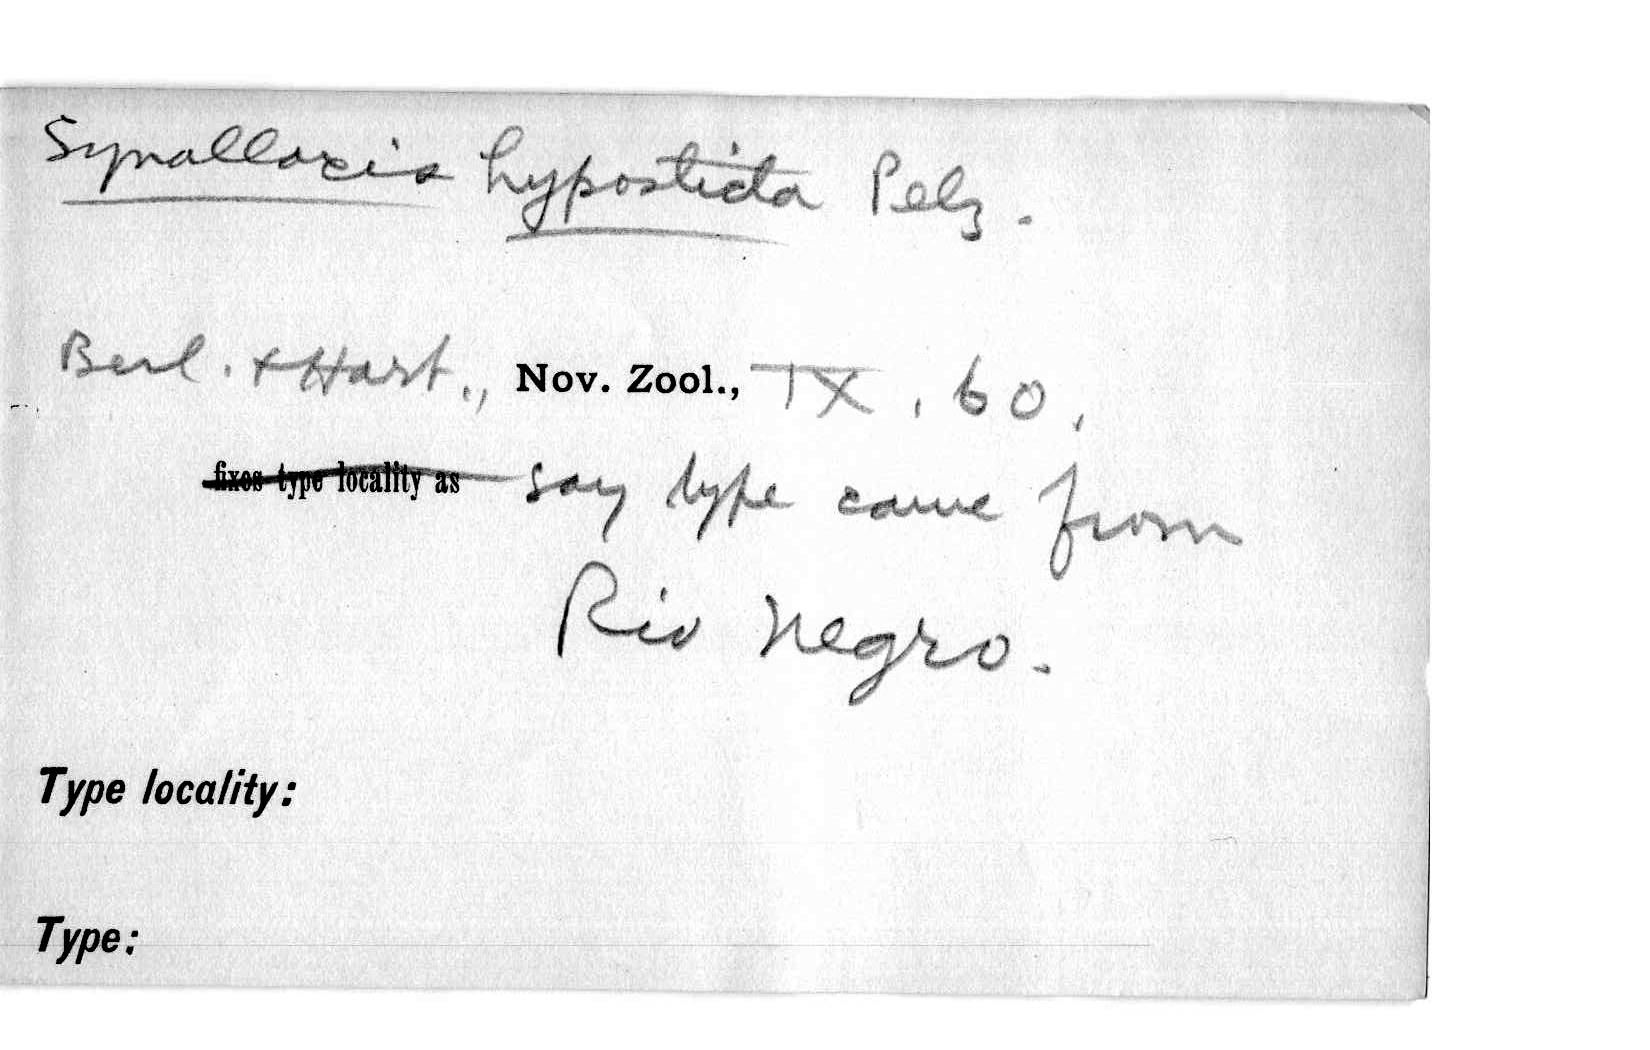 Synallaxis hyposticta Pelz.
Berl. + Hart., Nov. Zool., IX, 60,
fixes type locality as say type came from
Rio Negro.
Type locality:
Type: